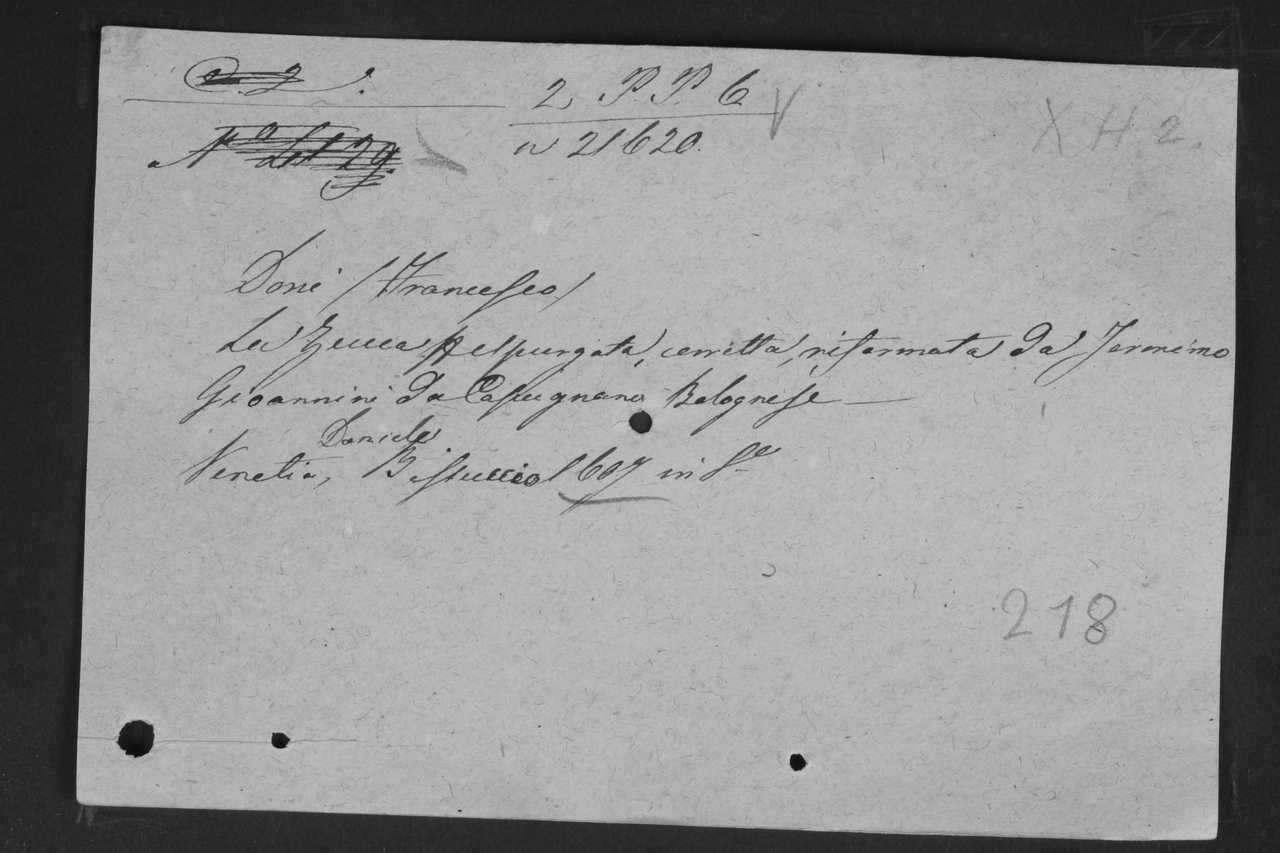 2 P.P. 6 V
n 21620.
X H 2.
Doni (Francesco)
La Zucca espurgata, corretta, riformata da Jeronimo
Gioannini da Capugnano Bolognese
Daniele
Venetia, Bissuccio 1607 in 8º
218